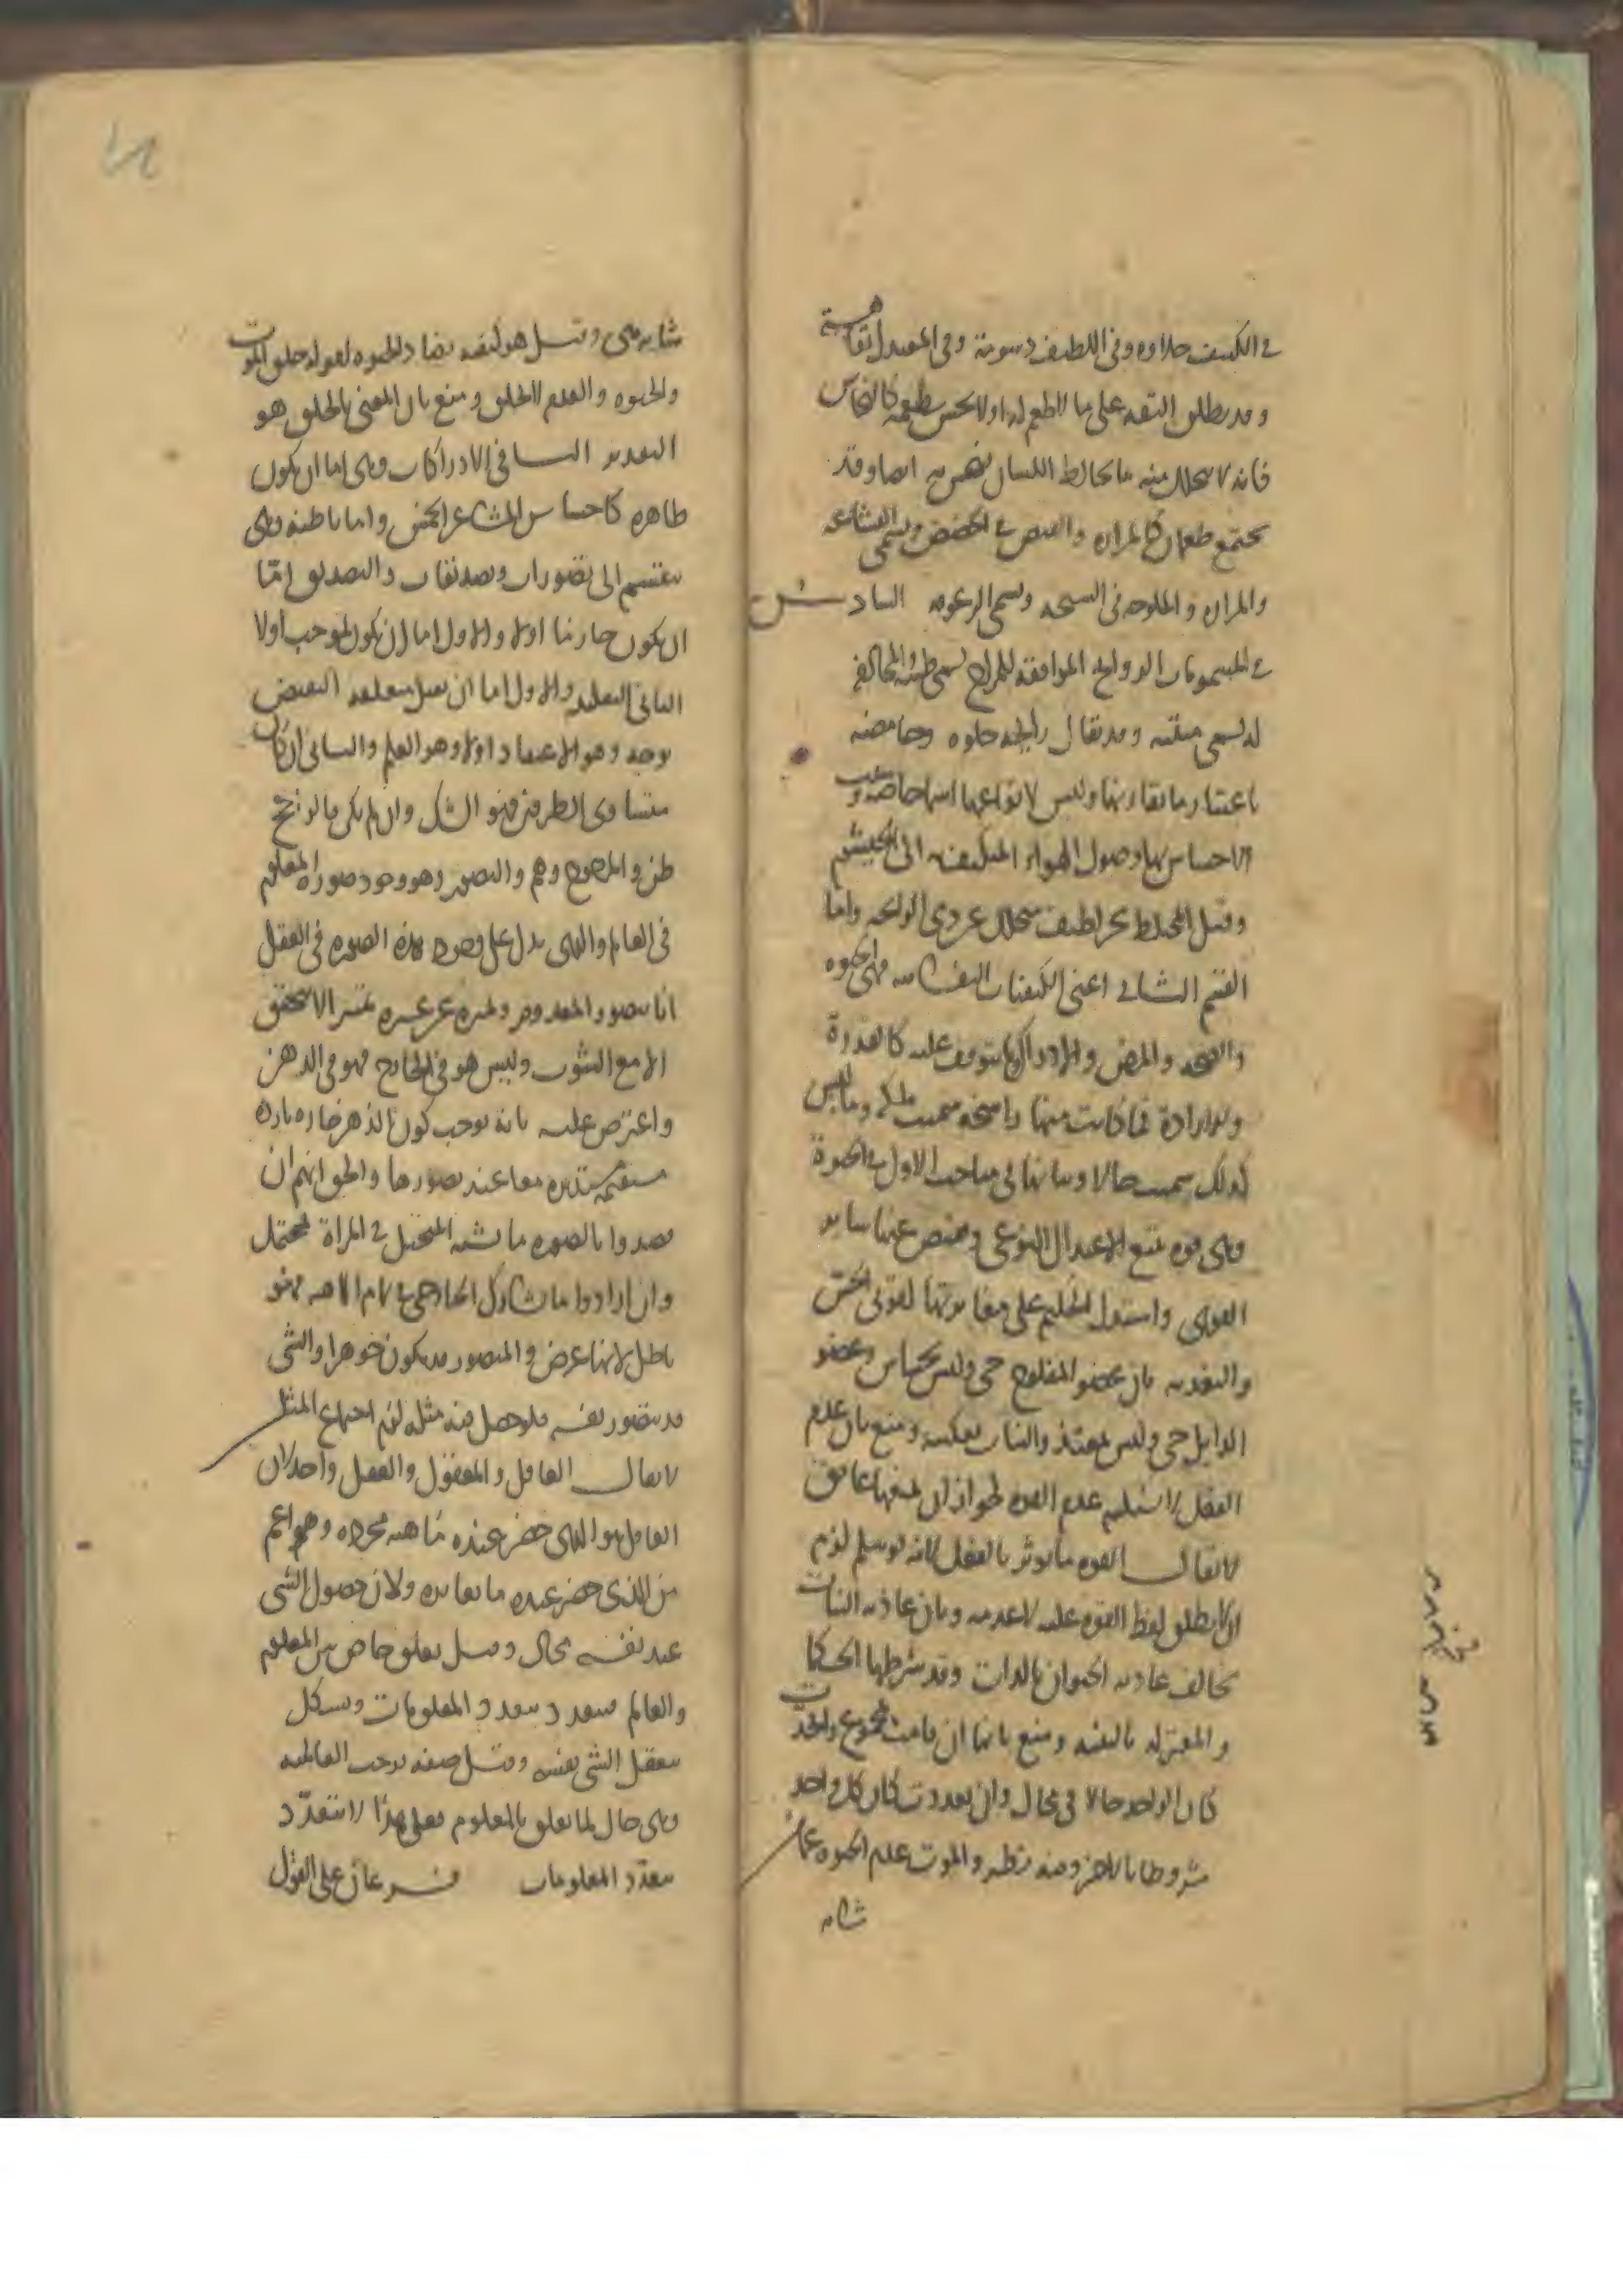 في الكثيف حلاوة وفي اللطيف دسومة وفي المعتدل تفاهة
وقد يطلق التفه على ما لا طعم له او لا يحس بطعمه كالنحاس
فانه لا يتحلل منه ما يخالط اللسان فيحس به ايضا وقد
يجتمع طعمان كالمرارة والقبض في الحضض ويسمى البشاعة
والمرارة والملوحة في السبخة ويسمى الزعوقة السادس
في المشمومات الروايح الموافقة للمزاج تسمى طيبة والمخالفة
له تسمى منتنة وقد يقال رايحة حلوة وحامضة
باعتبار ما يقارنها وليس لانواعها اسما خاصة وسبب
الاحساس بها وصول الهواء المتكيف الى الخيشوم
وقيل المختلط بجزء لطيف متحلل عن ذي الرايحة واما
القسم الثاني اعني الكيفيات النفسانية فهي الحيوة
والصحة والمرض والادراك وما يتوقف عليه كالقدرة
والارادة فما كانت منها راسخة سميت ملكة وما ليس
كذلك سميت حالا وبيانها في مباحث الاول في الحيوة
وهي قوة تتبع الاعتدال النوعي ويفيض عنها ساير
القوى واستدل الحكيم على مغايرتها لقوتي الحس
والتغذية بان عضو المفلوج حي وليس بحساس وعضو
الذابل حي وليس بمغتذ والنبات بعكسه ومنع بان عدم
الفعل لا يستلزم عدم القوة لجواز ان يمنعها عايق
لا يقال القوة ما يوثر بالفعل لانه لو سلم لزم
ان لا يطلق لفظ القوة عليه لا عدمه وبان غاذية النبات
تخالف غاذية الحيوان بالذات وقد شرطها الحكما
والمعتزلة بالبنية ومنع بانها ان قامت بمجموع واحدة
كان الواحد حالا في محال وان تعددت كان كل واحد
مشروطا بالاخر وفيه نظر والموت عدم الحيوة عما من
شانه
شانه حي وقيل هو كيفية تضاد الحيوة لقوله خلق الموت
والحيوة والعدم لا يخلق ومنع بان المعني بالخلق هو
التقدير الثاني في الادراكات وهي اما ان يكون
ظاهرة كاحساس المشاعر الخمس واما باطنة وهي
ينقسم الى تصورات وتصديقات والتصديق اما
ان يكون جازما اولا والاول اما ان يكون لموجب اولا
الثاني التقليد والاول اما ان يقبل متعلقه النقيض
بوجه وهو الاعتقاد اولا وهو العلم والثاني ان كان
متساوي الطرفين فهو الشك وان لم يكن فالراجح
ظن والمرجوح وهم والتصور وهو وجود صورة المعلوم
في العالم والذي يدل على وجود هذه الصورة في العقل
انا نتصور المعدوم ونميزه عن غيره والتميز لا يتحقق
الا مع الثبوت وليس هو في الخارج فهو في الذهن
واعترض عليه بانه يوجب كون الذهن حارة باردة
مستقيمة مستديرة معا عند تصورها والحق انهم ان
قصدوا بالصورة ما يشبه المتخيل في المرآة فمحتمل
وان ارادوا ما يشارك الخارجي في تمام الماهية فهو
باطل لانها عرض والمتصور قد يكون جوهرا والشي
قد يتصور نفسه فلو حصل فيه مثله لزم اجتماع المثلين
لا يقال العاقل والمعقول والعقل واحد لان
العاقل هو الذي حضر عنده ماهية مجردة وهو اعم
من الذي حضر عنده ما يغايره ولان حصول الشي
عند نفسه محال وقيل تعلق خاص بين المعلوم
والعالم فيتعدد بتعدد المعلومات ويشكل
بتعقل الشي نفسه وقيل صفة توجب العالمية
وهي حال لها تعلق بالمعلوم فعلى هذا لا يتعدد
بتعدد المعلومات فرعان على القول